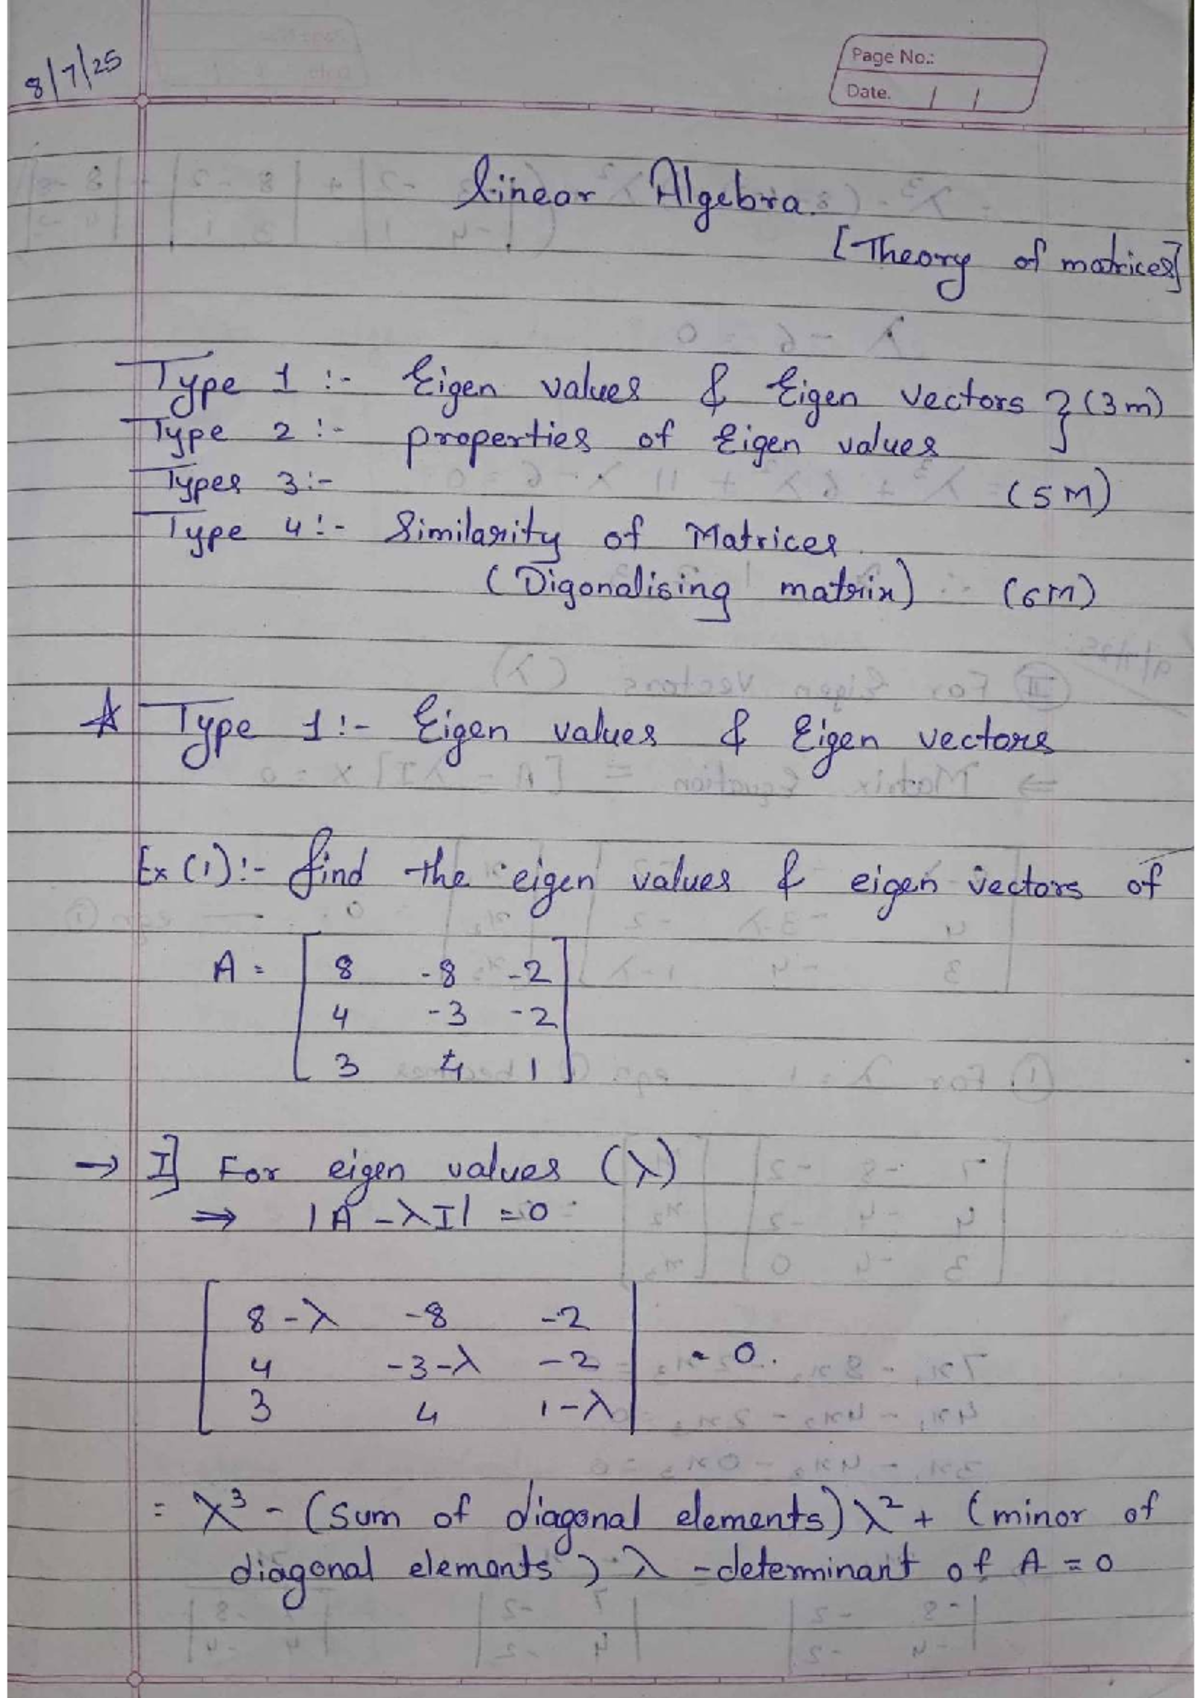 8/7/25
Page No.:
Date. / /
Linear Algebra.
[Theory of matrices]
Type 1 :- Eigen values & Eigen vectors } (3m)
Type 2 :- properties of Eigen values
Types 3:- (5M)
Type 4 :- Similarity of Matrices
(Digonalising matrix) (6M)
☆ Type 1:- Eigen values & Eigen vectors
Ex (1):- find the eigen values & eigen vectors of
A = [ 8 -8 -2
4 -3 -2
3 -4 1 ]
→ I] For eigen values (λ)
⇒ |A - λI| = 0
| 8-λ -8 -2 |
| 4 -3-λ -2 | = 0.
| 3 4 1-λ |
= λ³ - (sum of diagonal elements) λ² + (minor of
diagonal elements) λ - determinant of A = 0